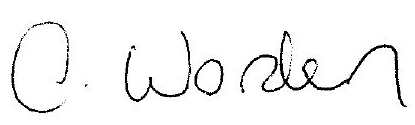 C. Worden